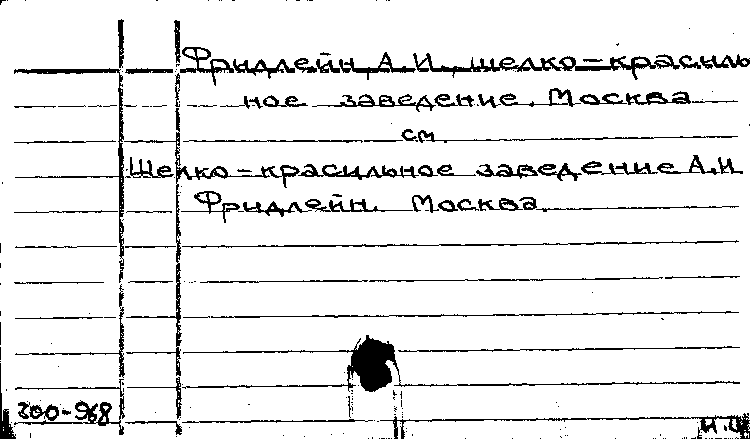 Фридлейн, А.И., шелко-красиль
ное заведение. Москва
см.
Шелко-красильное заведение А.И
Фридлейн. Москва.
200-968